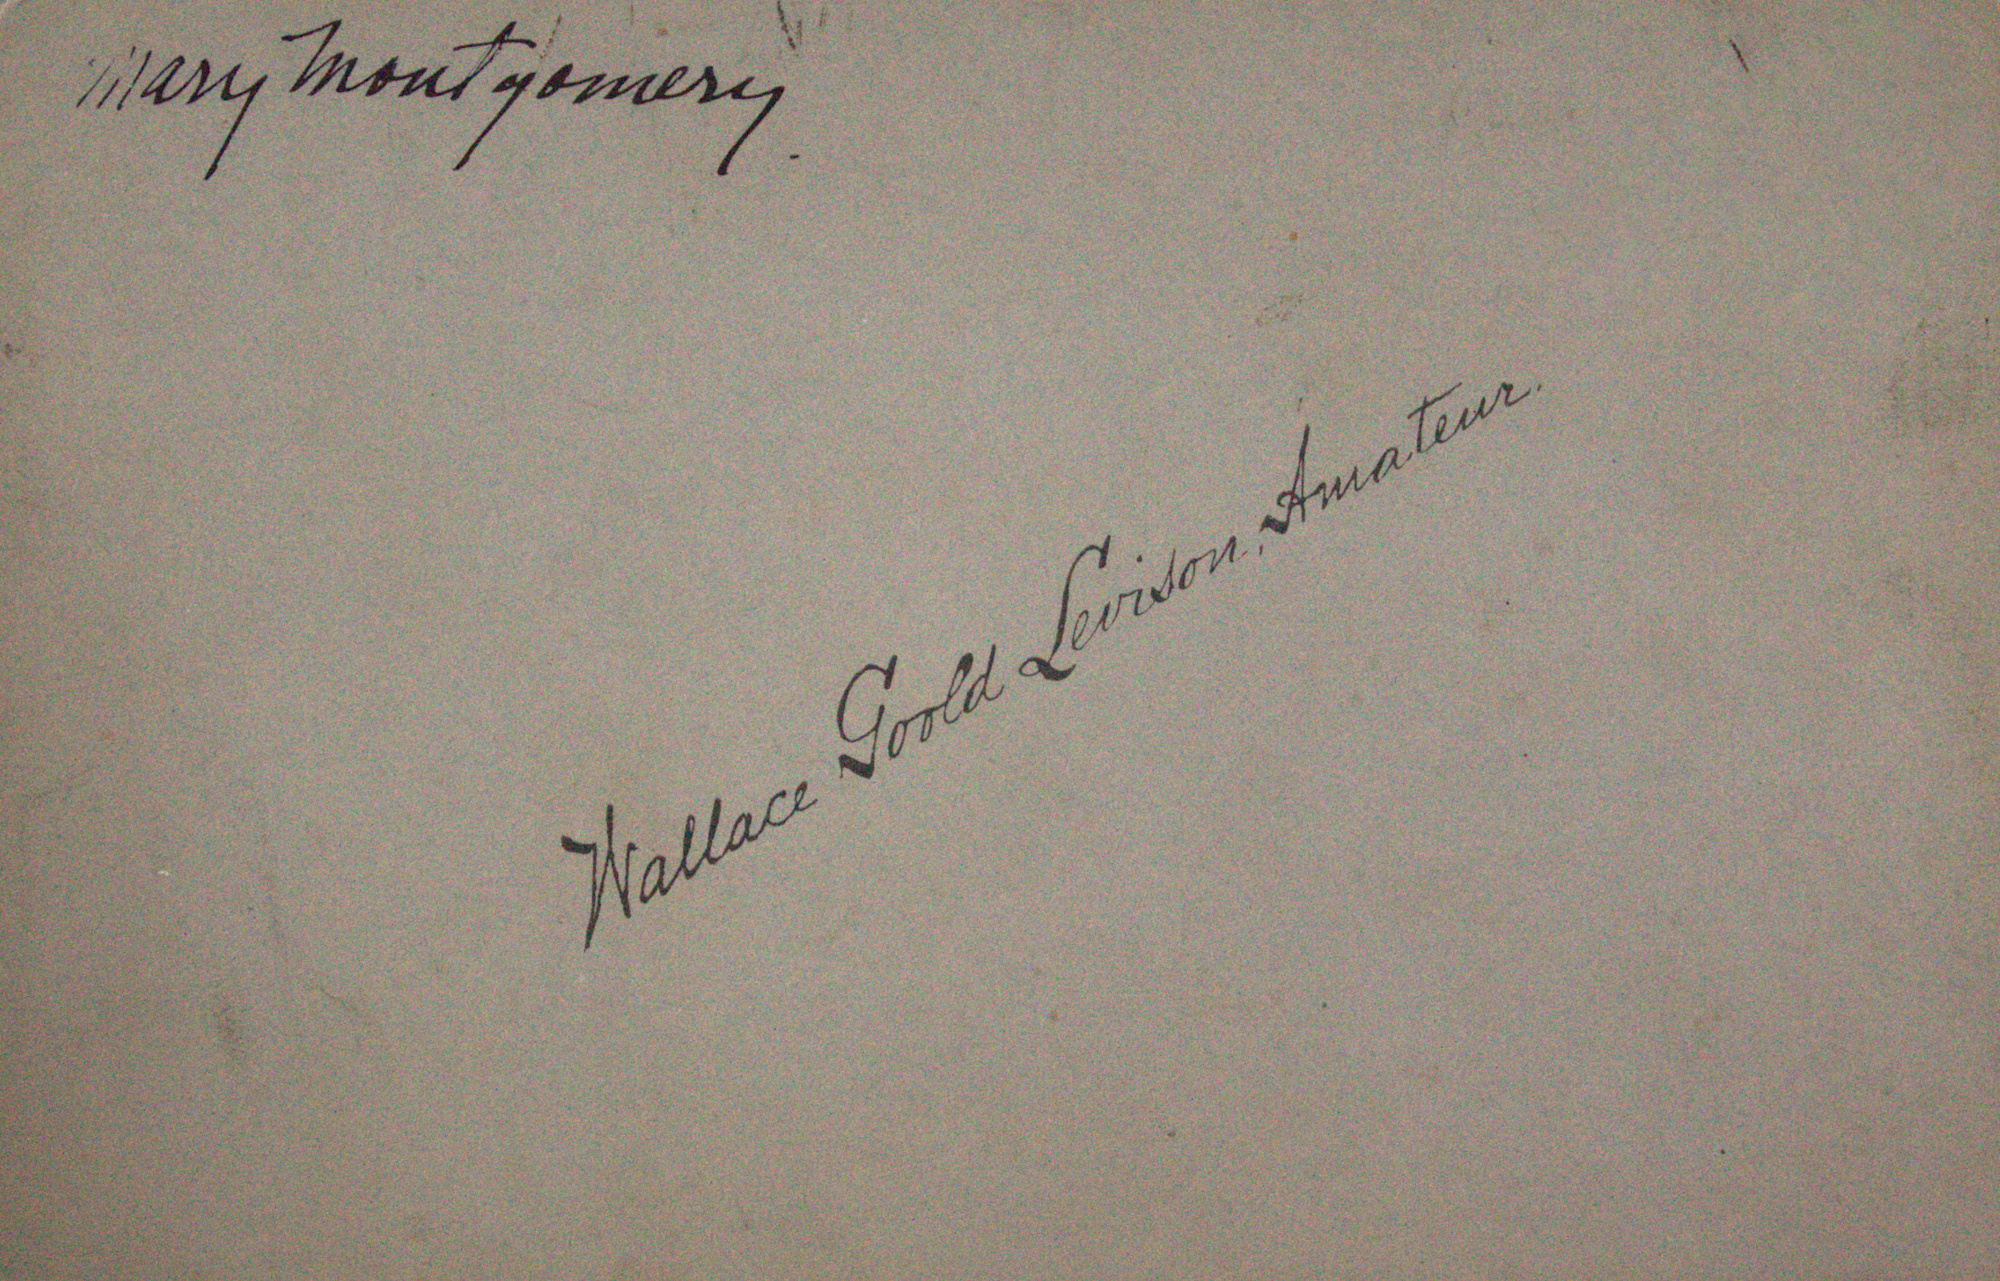 Mary Montgomery.
Wallace Goold Levison, Amateur.